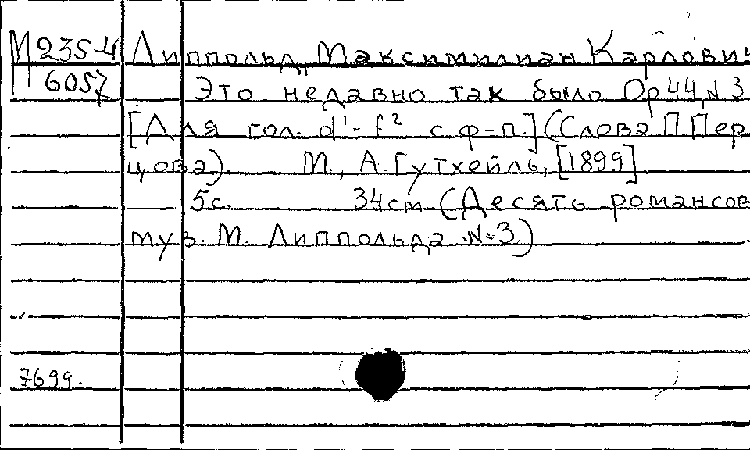 М 235-4 Липпольд, Максимилиан Карлович
6057 Это недавно так было Ор 44, N 3
[Для гол. d¹-f² с ф-п.] (Слова П Пер
цова). М., А. Гутхейль, [1899]
5с. 34см (Десять романсов
муз. М. Липпольда №3)
7699.